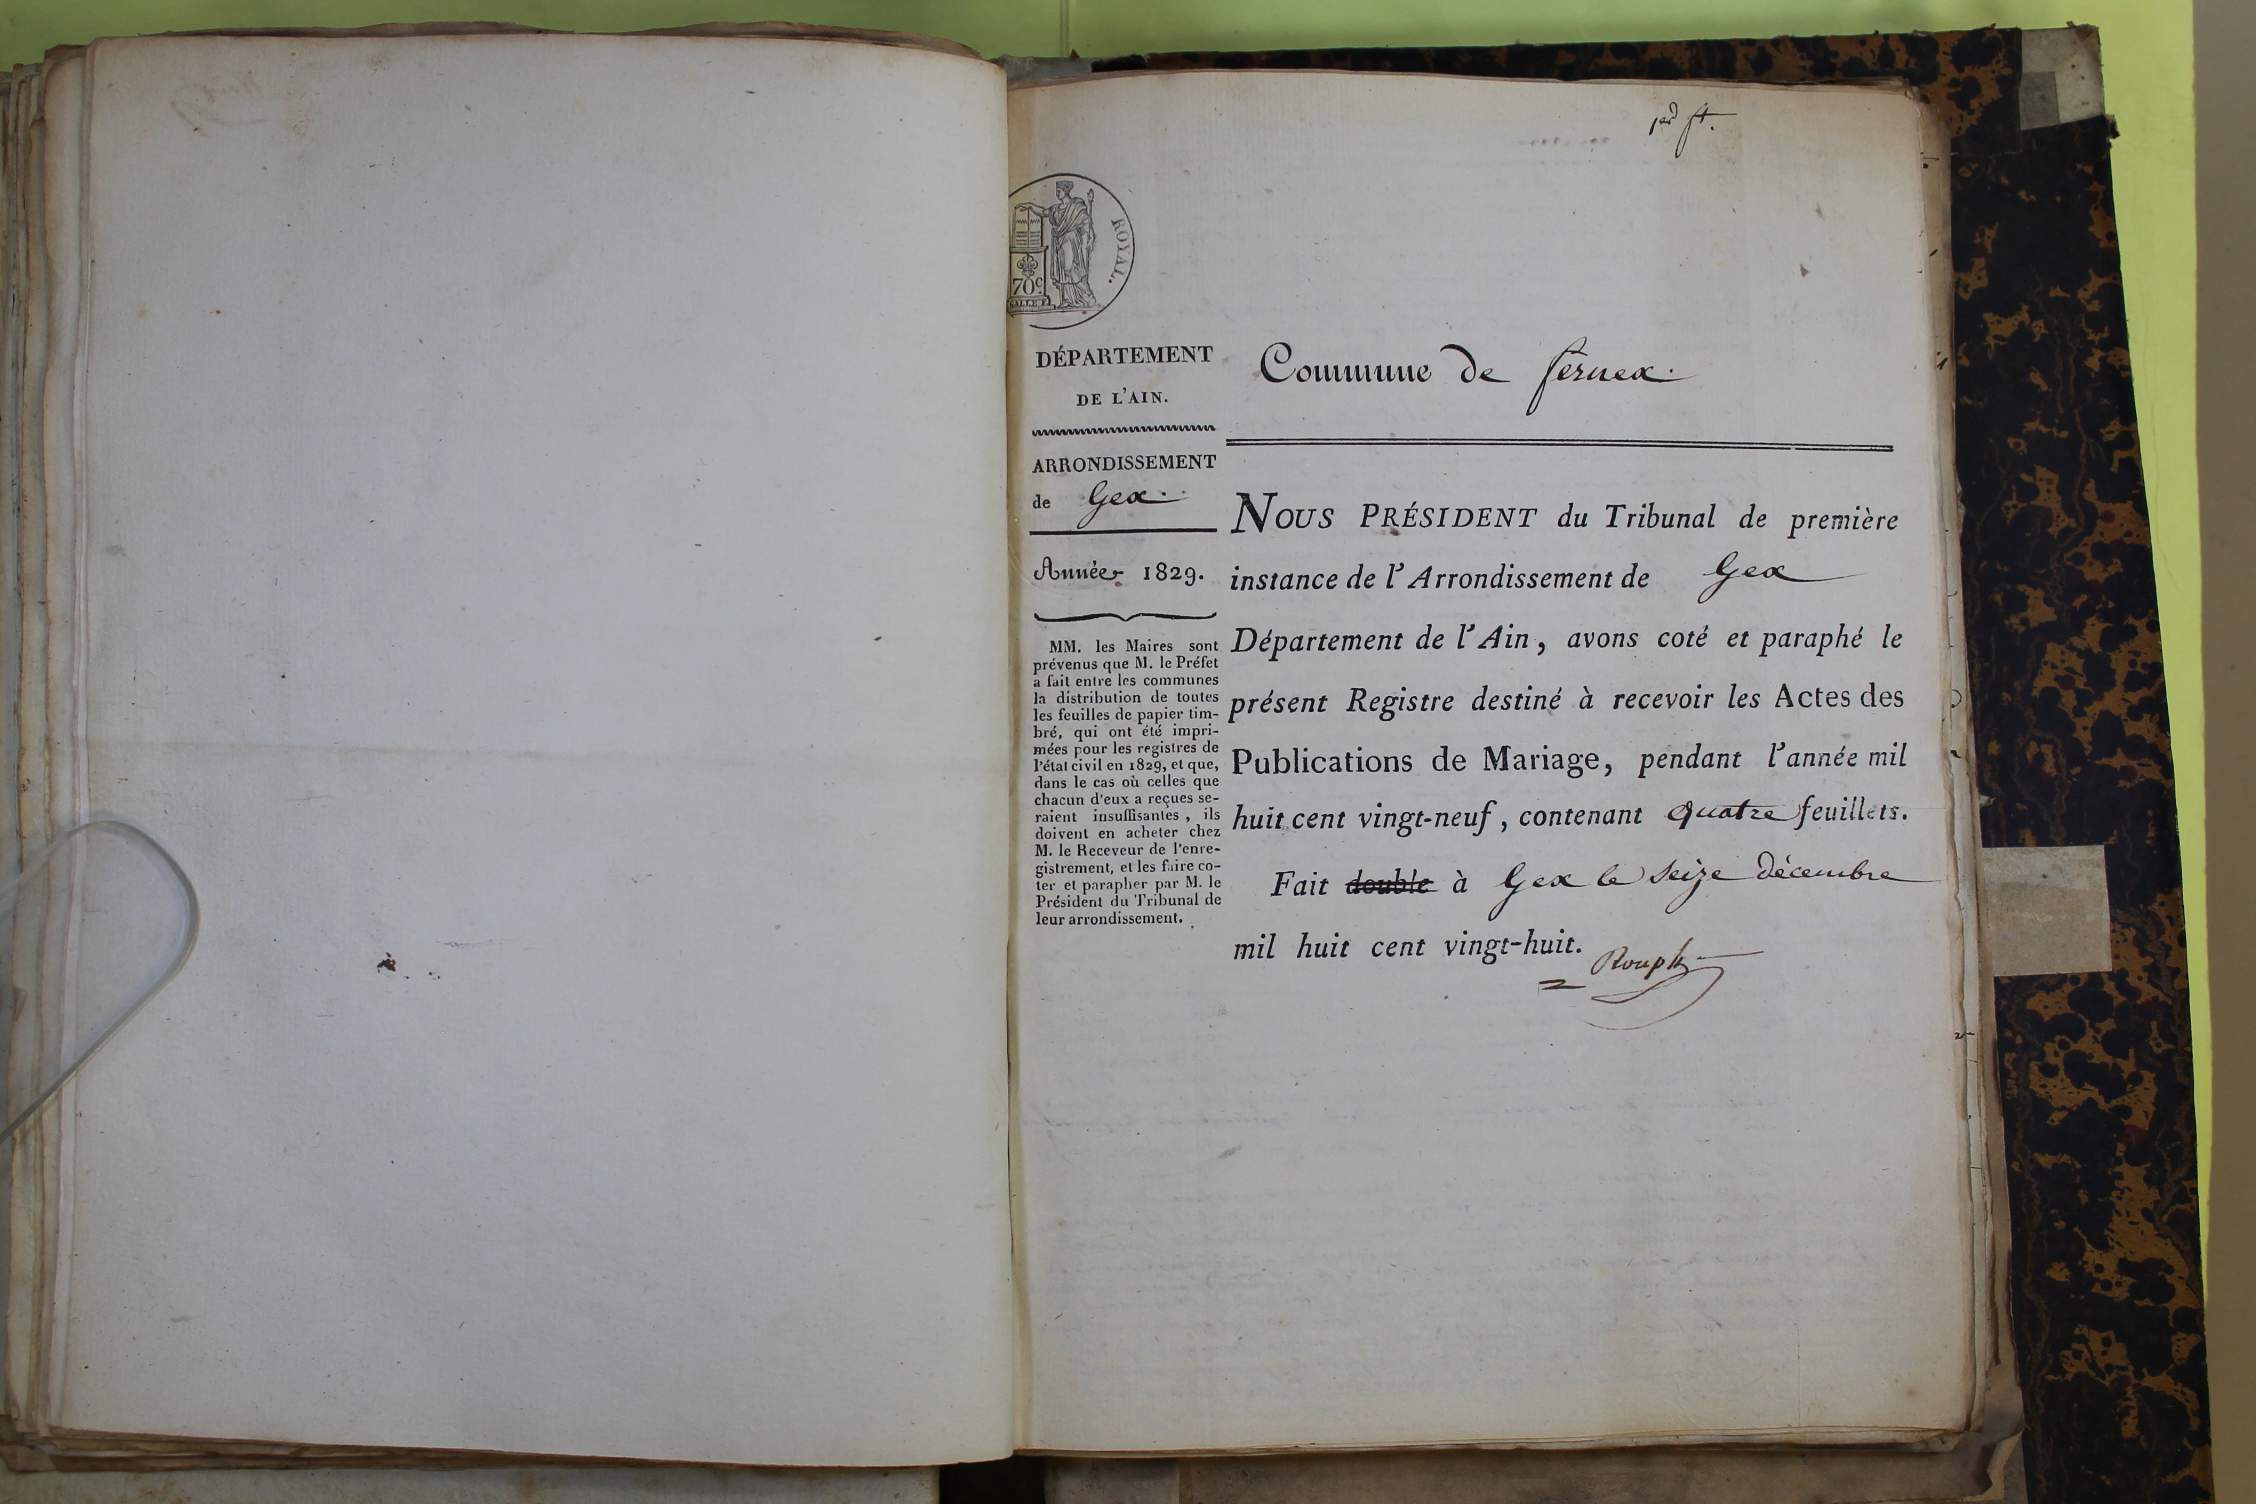 1er ft.
ROYAL.
70c.
DÉPARTEMENT
DE L'AIN.
ARRONDISSEMENT
de Gex.
Année 1829.
MM. les Maires sont
prévenus que M. le Préfet
a fait entre les communes
la distribution de toutes
les feuilles de papier tim-
bré, qui ont été impri-
mées pour les registres de
l'état civil en 1829, et que,
dans le cas où celles que
chacun d'eux a reçues se-
raient insuffisantes, ils
doivent en acheter chez
M. le Receveur de l'enre-
gistrement, et les faire co-
ter et parapher par M. le
Président du Tribunal de
leur arrondissement.
Commune de fernex.
NOUS PRÉSIDENT du Tribunal de première
instance de l'Arrondissement de Gex
Département de l'Ain, avons coté et paraphé le
présent Registre destiné à recevoir les Actes des
Publications de Mariage, pendant l'année mil
huit cent vingt-neuf, contenant quatre feuillets.
Fait double à Gex le seize décembre
mil huit cent vingt-huit.